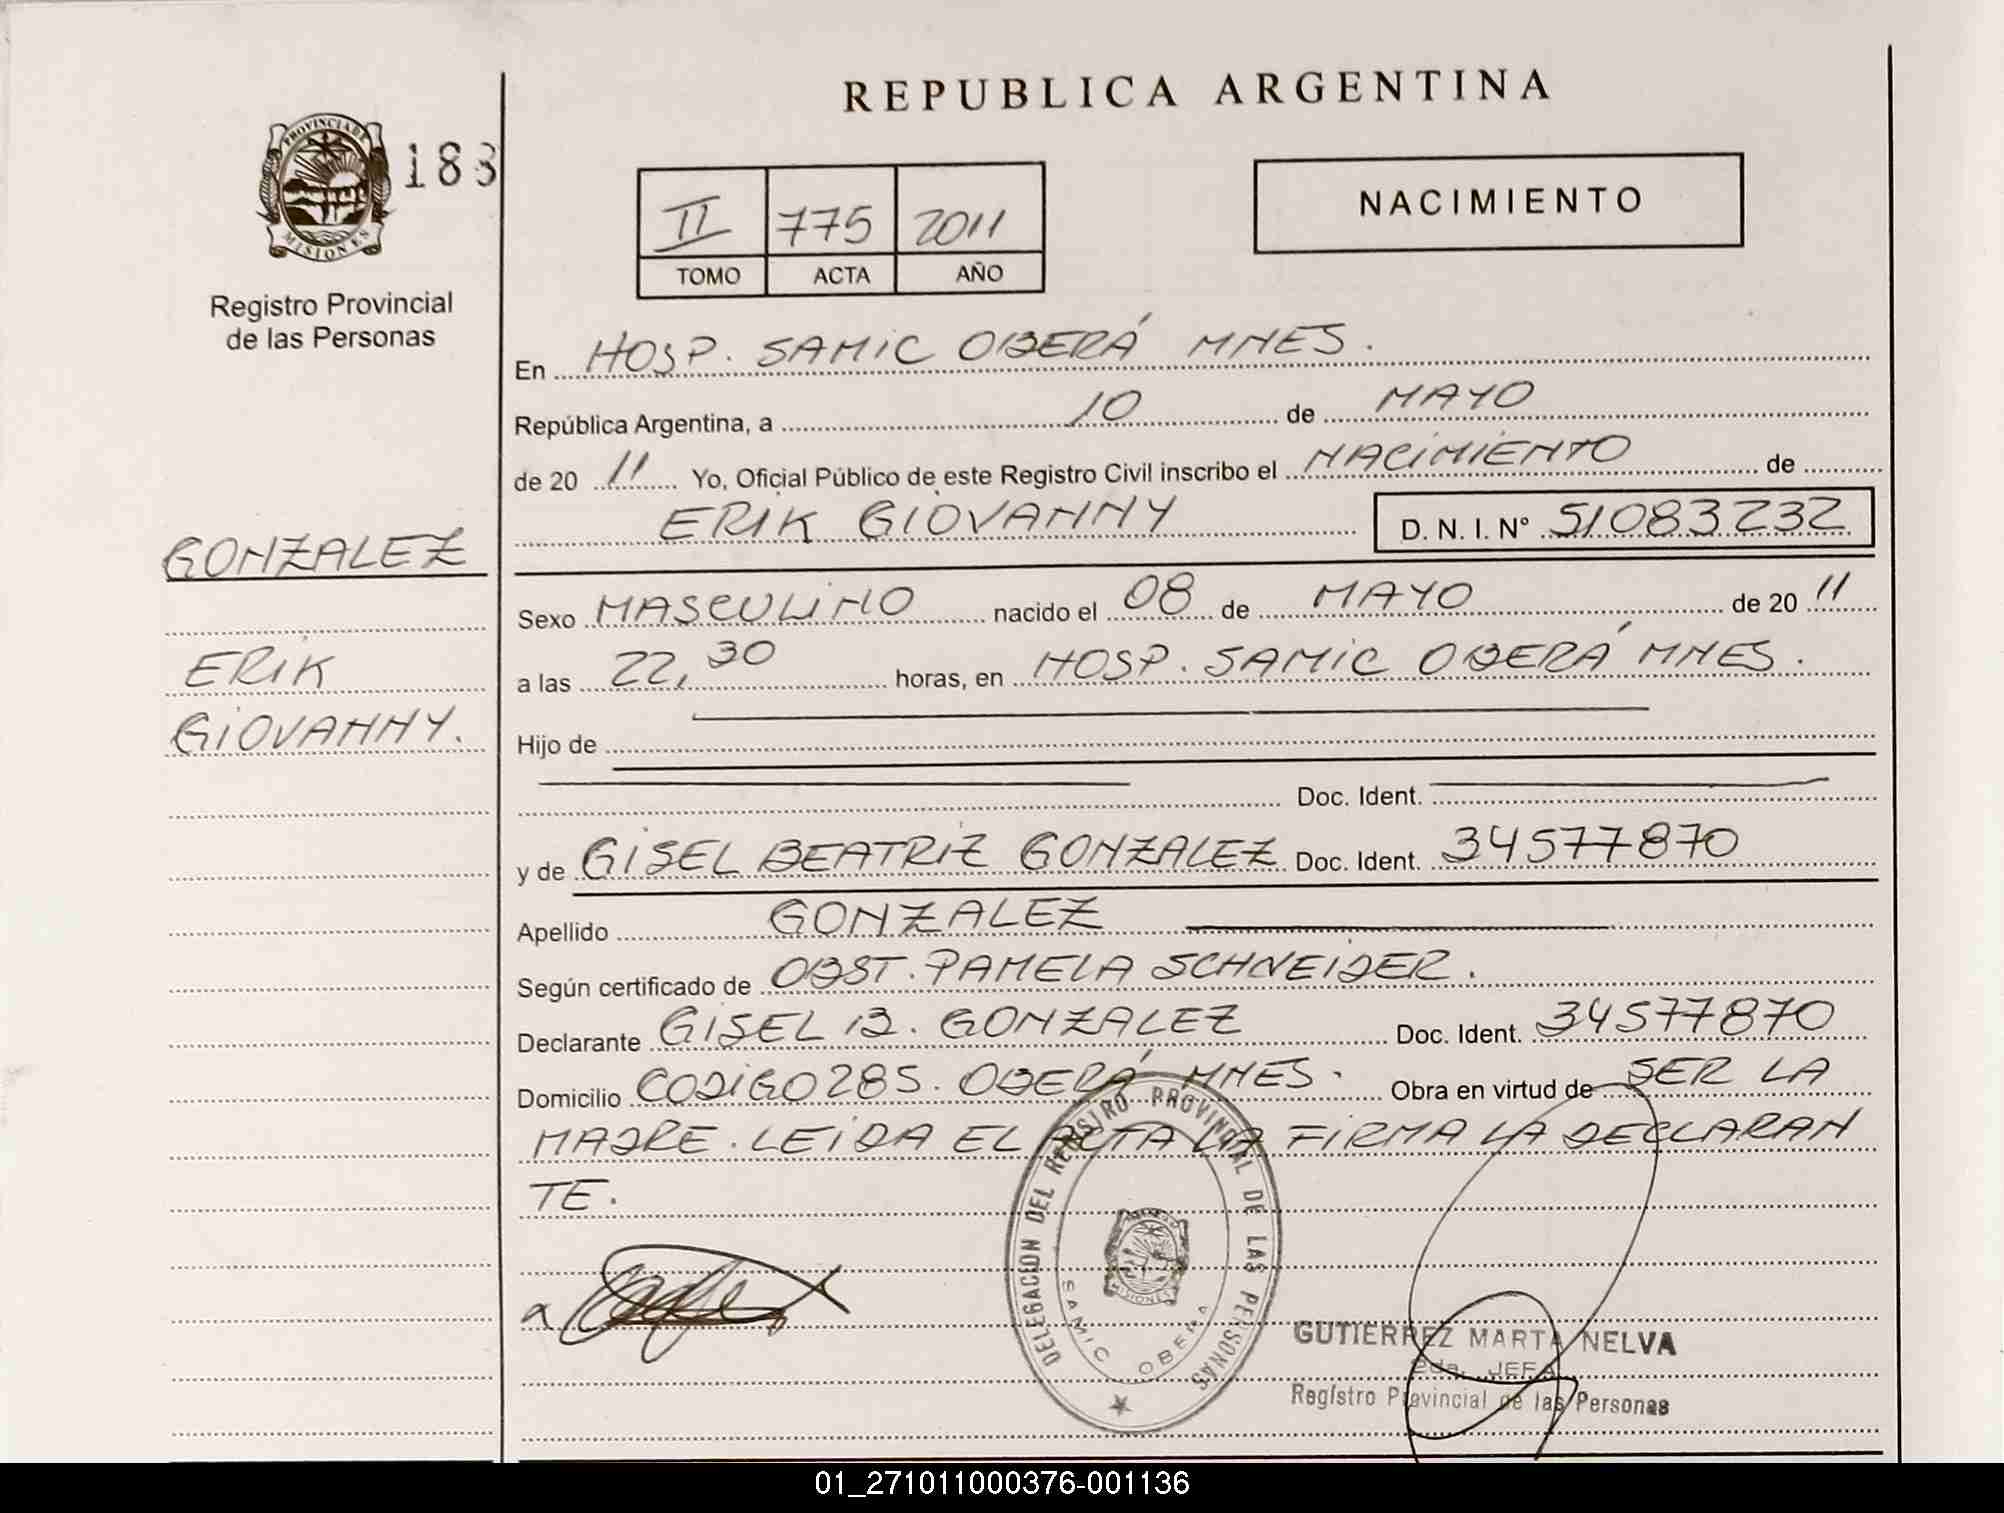 REPUBLICA ARGENTINA
PROVINCIA DE
MISIONES
183
Registro Provincial
de las Personas
II 775 2011
TOMO ACTA AÑO
NACIMIENTO
En HOSP. SAMIC OBERÁ MNES.
República Argentina, a 10 de MAYO
de 20 11 Yo, Oficial Público de este Registro Civil inscribo el NACIMIENTO de
ERIK GIOVANNY D. N. I. Nº 51083232
GONZALEZ
ERIK
GIOVANNY.
Sexo MASCULINO nacido el 08 de MAYO de 20 11
a las 22,30 horas, en HOSP. SAMIC OBERÁ MNES.
Hijo de
Doc. Ident.
y de GISEL BEATRIZ GONZALEZ Doc. Ident. 34577870
Apellido GONZALEZ
Según certificado de OBST. PAMELA SCHNEIDER.
Declarante GISEL B. GONZALEZ Doc. Ident. 34577870
Domicilio CODIGO 285. OBERÁ MNES. Obra en virtud de SER LA
MADRE. LEIDA EL ACTA LA FIRMA LA DECLARAN
TE.
DELEGACION DEL REGISTRO PROVINCIAL DE LAS PERSONAS
MISIONES
SAMIC OBERA
GUTIERREZ MARTA NELVA
2da. JEFA
Registro Provincial de las Personas
01_271011000376-001136